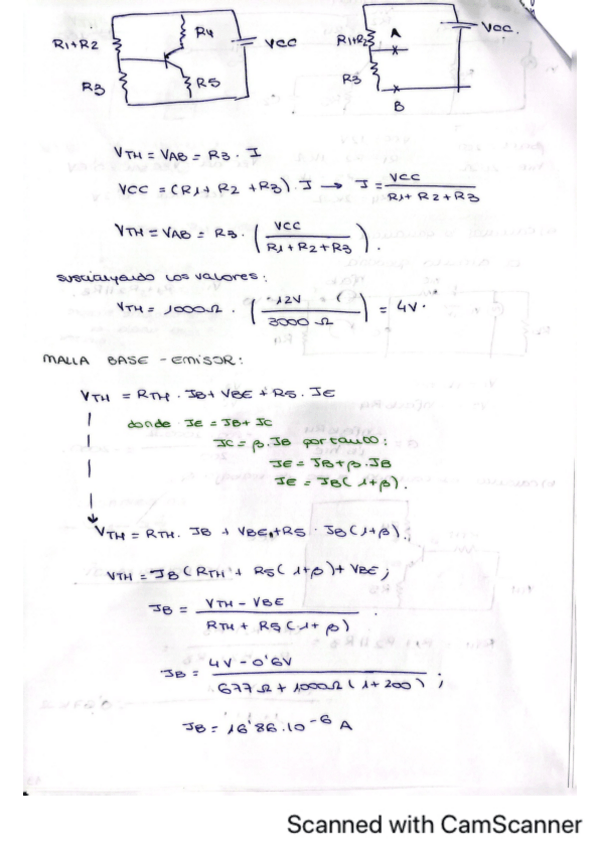 R1+R2
R4
VCC
R3
R5
R1+R2
A
VCC.
R3
B
VTH = VAB = R3 · I
VCC = (R1+ R2 +R3) . I → I = VCC / R1+ R2+R3
VTH = VAB = R3 · ( VCC / R1+R2+R3 ).
los valores:
VTH = 1000Ω · ( 12V / 3000 Ω ) = 4V.
MALLA BASE - EMISOR:
VTH = RTH . IB + VBE + R5 . IE
donde IE = IB + IC
IC = β . IB por tanto:
IE = IB + β . IB
IE = IB ( 1+β ).
VTH = RTH . IB + VBE + R5 · IB ( 1+β ).
VTH = IB ( RTH + R5 ( 1+β ) + VBE ;
IB = VTH - VBE / RTH + R5 ( 1+ β )
IB = 4V - 0'6V / 677 Ω + 1000Ω ( 1+ 200 ) ;
IB = 16'86.10-6 A
Scanned with CamScanner